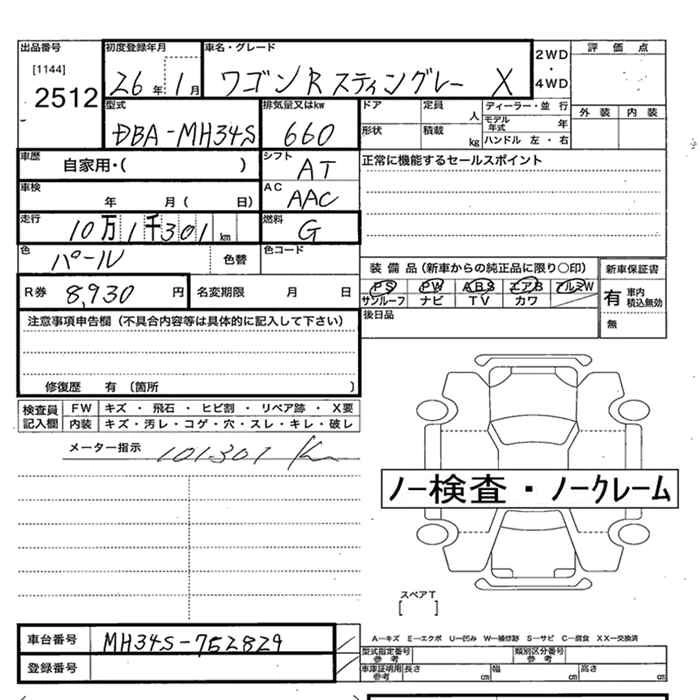 出品番号 初度登録年月 車名・グレード 2WD・4WD 評価点
[1144]
2512 26年 1月 ワゴンR スティングレー X
型式 排気量又はkw ドア 定員 人 ディーラー・並行 外装 内装
DBA-MH34S 660 形状 積載 kg モデル年式 年 ハンドル 左・右
車歴 自家用・( ) シフト AT 正常に機能するセールスポイント
車検 年 月( 日) AC AAC
走行 10万1千301km 燃料 G
色 パール 色替 色コード
装備品(新車からの純正品に限り○印) 新車保証書
R券 8,930円 名変期限 月 日 PS PW ABS エアB アルミW 有 車内 積込無効
サンルーフ ナビ TV カワ
注意事項申告欄(不具合内容等は具体的に記入して下さい) 後日品 無
修復歴 有(箇所 )
検査員記入欄 FW キズ・飛石・ヒビ割・リペア跡・X要
内装 キズ・汚レ・コゲ・穴・スレ・キレ・破レ
メーター指示 101301 Km
ノー検査・ノークレーム
スペアT
[ ]
車台番号 MH34S-752829
A-キズ E-エクボ U-凹み W-補修跡 S-サビ C-腐食 XX-交換済
登録番号 型式指定番号 参考 類別区分番号 参考
車庫証明用参考 長さ cm 幅 cm 高さ cm